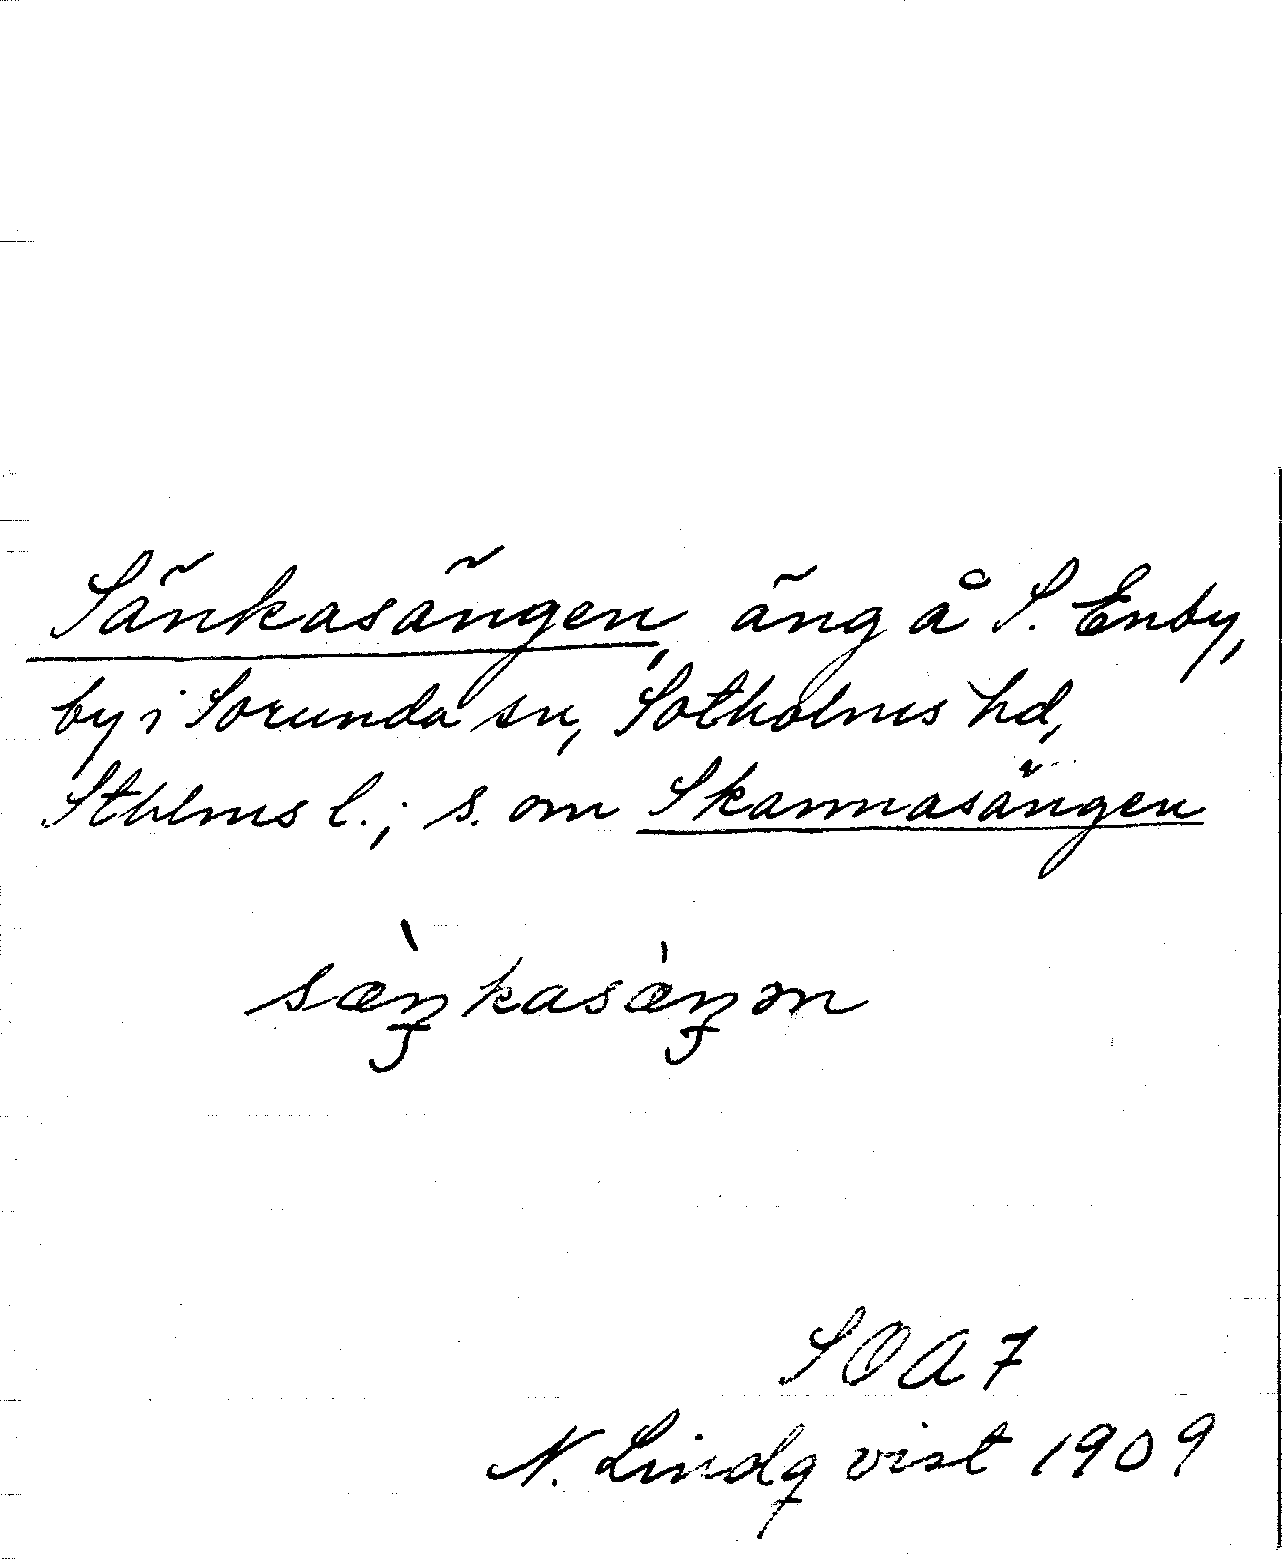 Sänkasängen, äng å S. Enby,
by i Sorunda sn, Sotholms hd,
Sthlms l.; s. om Skannasängen
sæ̀ŋkasæ̀ŋən
SOA 7
N. Lindqvist 1909